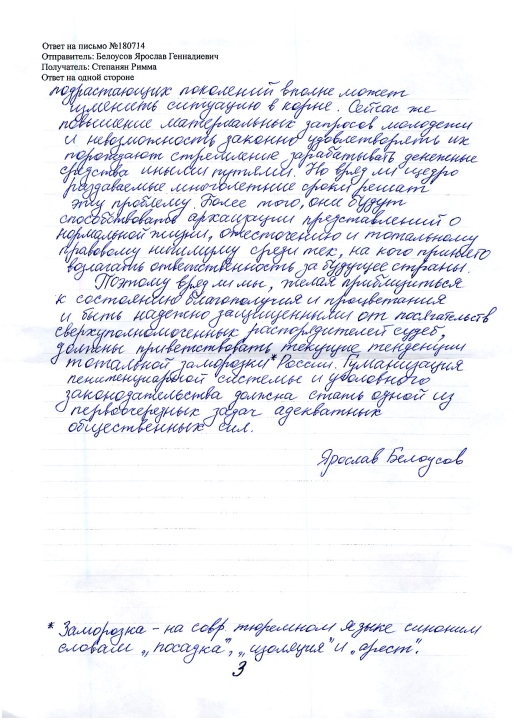 Ответ на письмо №180714
Отправитель: Белоусов Ярослав Геннадиевич
Получатель: Степанян Римма
Ответ на одной стороне
подрастающих поколений вполне может
изменить ситуацию в корне. Сейчас же
повышение материальных запросов молодежи
и невозможность законно удовлетворять их
порождают стремление зарабатывать денежные
средства иными путями. Но вряд ли щедро
раздаваемые многолетние сроки решат
эту проблему. Более того, они будут
способствовать архаизации представлений о
нормальной жизни, ожесточению и тотальному
правовому нигилизму среди тех, на кого принято
возлагать ответственность за будущее страны.
Поэтому вряд ли мы, желая приблизиться
к состоянию благополучия и процветания
и быть надежно защищенными от посягательств
сверхуполномоченных распорядителей судеб,
должны приветствовать текущие тенденции
тотальной заморозки* России. Гуманизация
пенитенциарной системы и уголовного
законодательства должна стать одной из
первоочередных задач адекватных
общественных сил.
Ярослав Белоусов
* Заморозка - на совр. тюремном языке синоним
словам „посадка", „изоляция" и „арест".
3